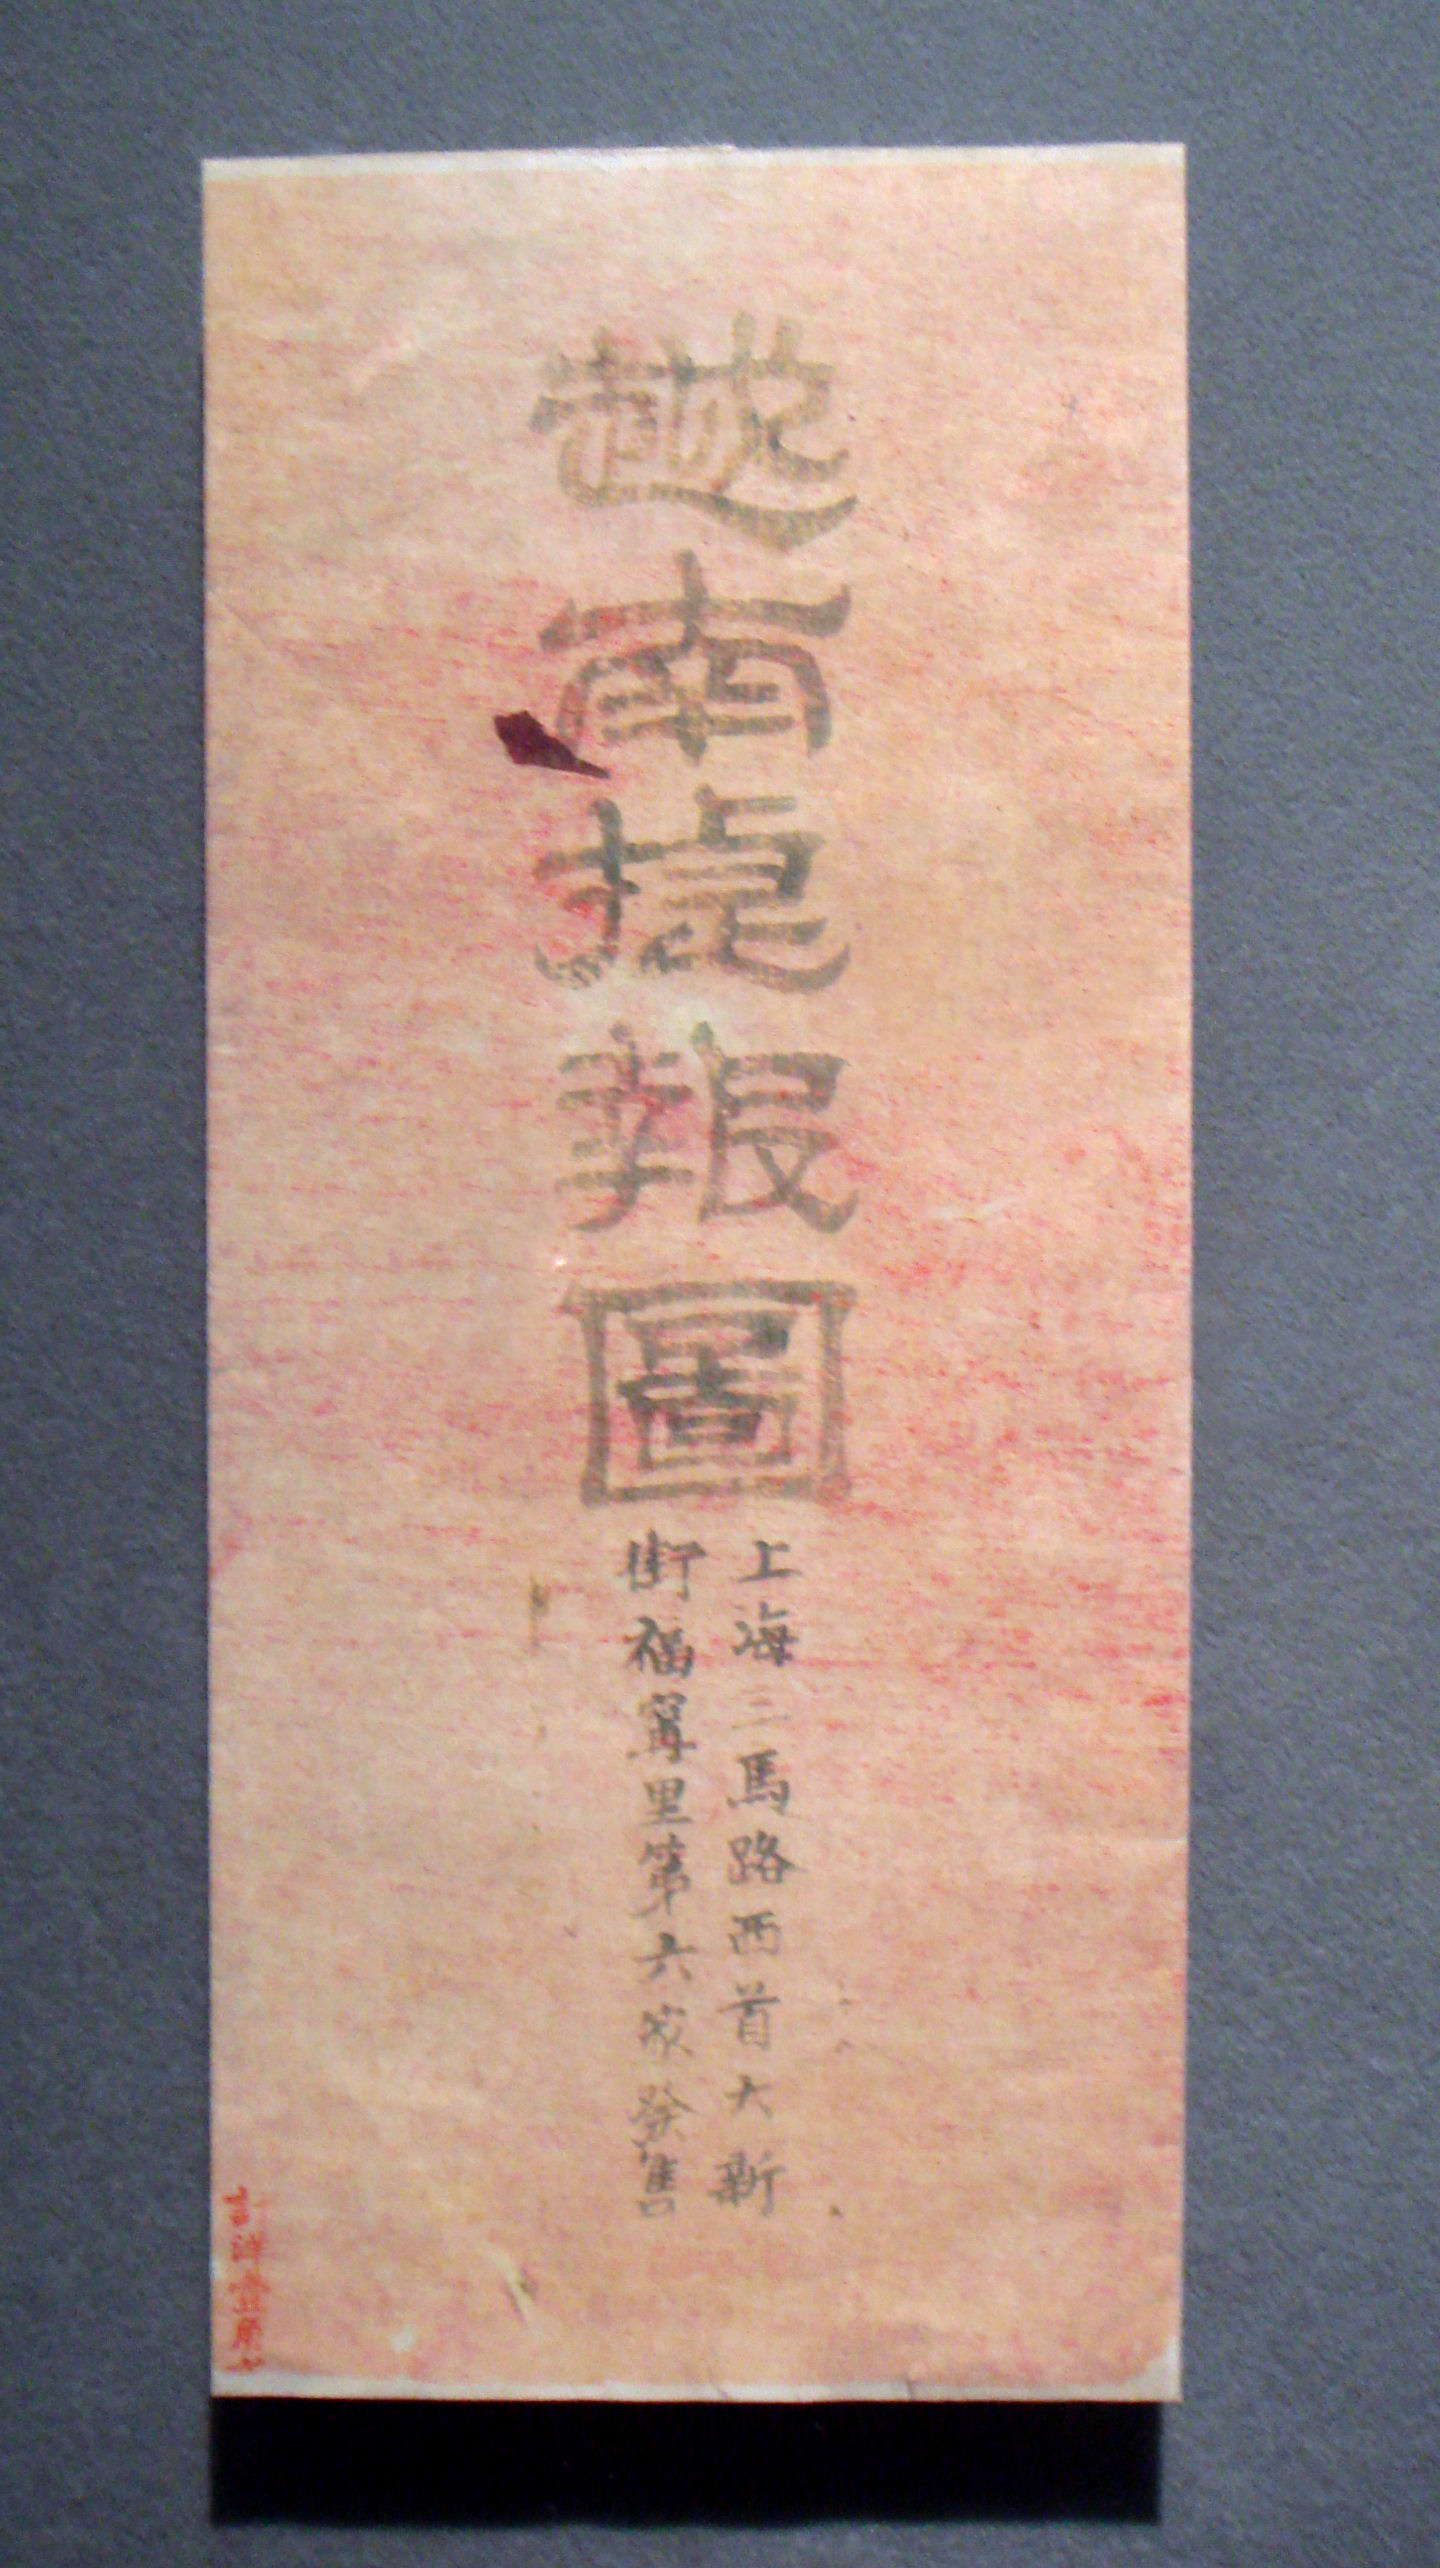 越南捷報圖
上海三馬路西首大新
街福寗里第六家發售
計洋壹角